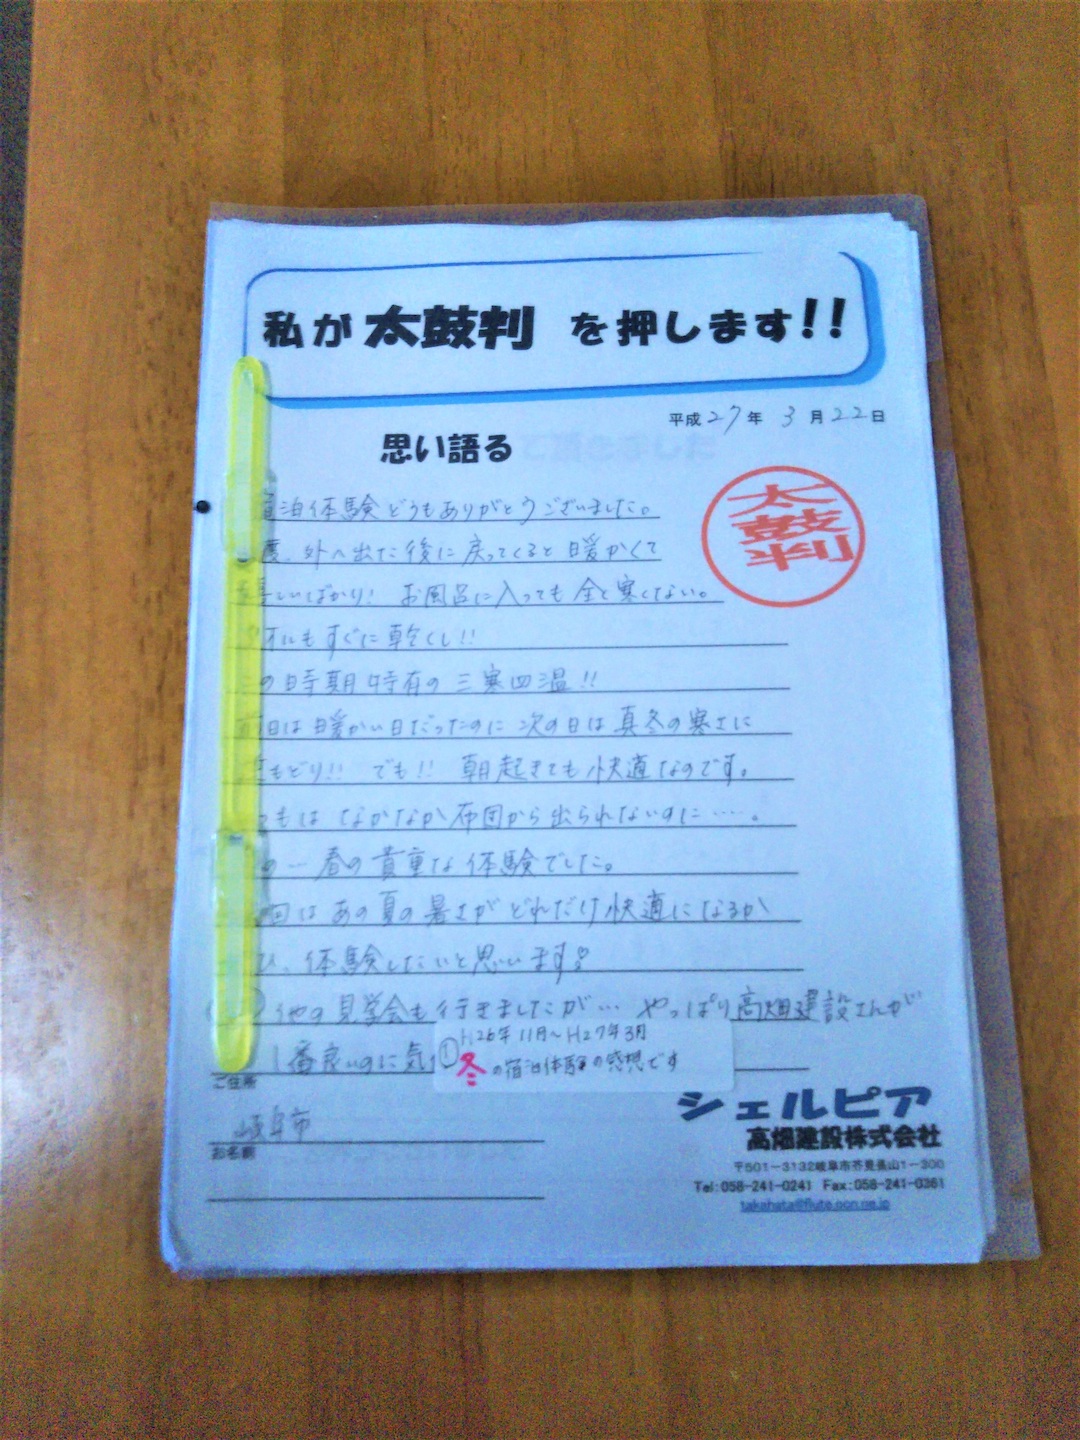 私が太鼓判を押します!!
平成27年3月22日
思い語る
太鼓判
泊体験どうもありがとうございました。
度、外へ出た後に戻ってくると暖かくて
しいばかり! お風呂に入っても全く寒くない。
オルもすぐに乾くし!!
の時期特有の三寒四温!!
前日は暖かい日だったのに次の日は真冬の寒さに
もどり!! でも!! 朝起きても快適なのです。
もは なかなか布団から出られないのに……。
春の貴重な体験でした。
回はあの夏の暑さがどれだけ快適になるか
ひ、体験したいと思います
他の見学会も行きましたが… やっぱり高畑建設さんが
1番良いのに気
① H26年11月~H27年3月
冬の宿泊体験の感想です
ご住所
岐阜市
お名前
シェルピア
高畑建設株式会社
〒501-3132岐阜市芥見長山1-300
Tel:058-241-0241 Fax:058-241-0361
takahata@flute.ocn.ne.jp